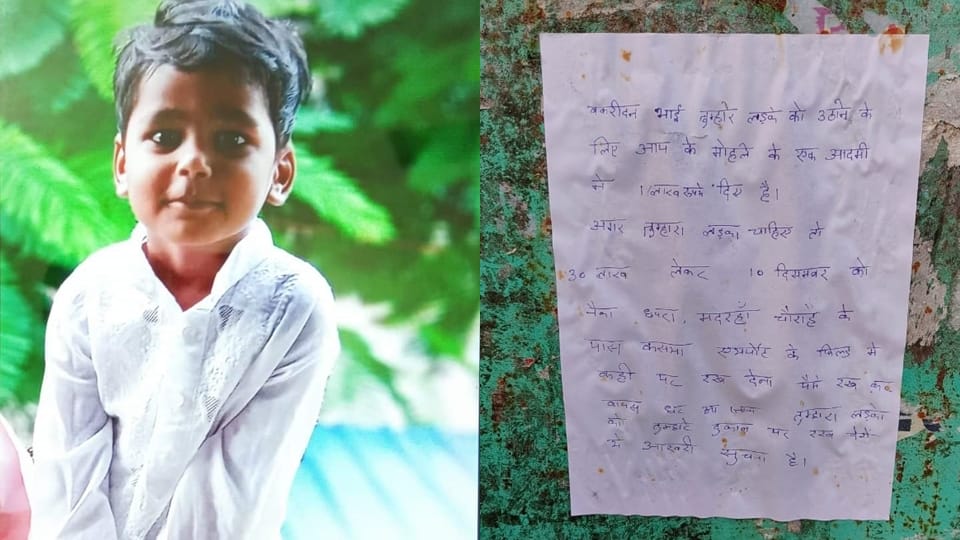 बकरीदन भाई तुम्हारे लड़के को उठाने के
लिए आप के मोहले के एक आदमी
ने 1 लाख रूपये दिए है।
अगर तुम्हारा लड़का चाहिए तो
30 लाख लेकर 10 दिसम्बर को
मदरहाँ चौराहे के
पास कसया एयरपोर्ट के फिल्ड मे
कही पर रख देना पैसे रख कर
वापस घर आ जाना तुम्हारा लड़का
को तुम्हारे दुकान पर रख देगें
ये आखरी सुचना है।